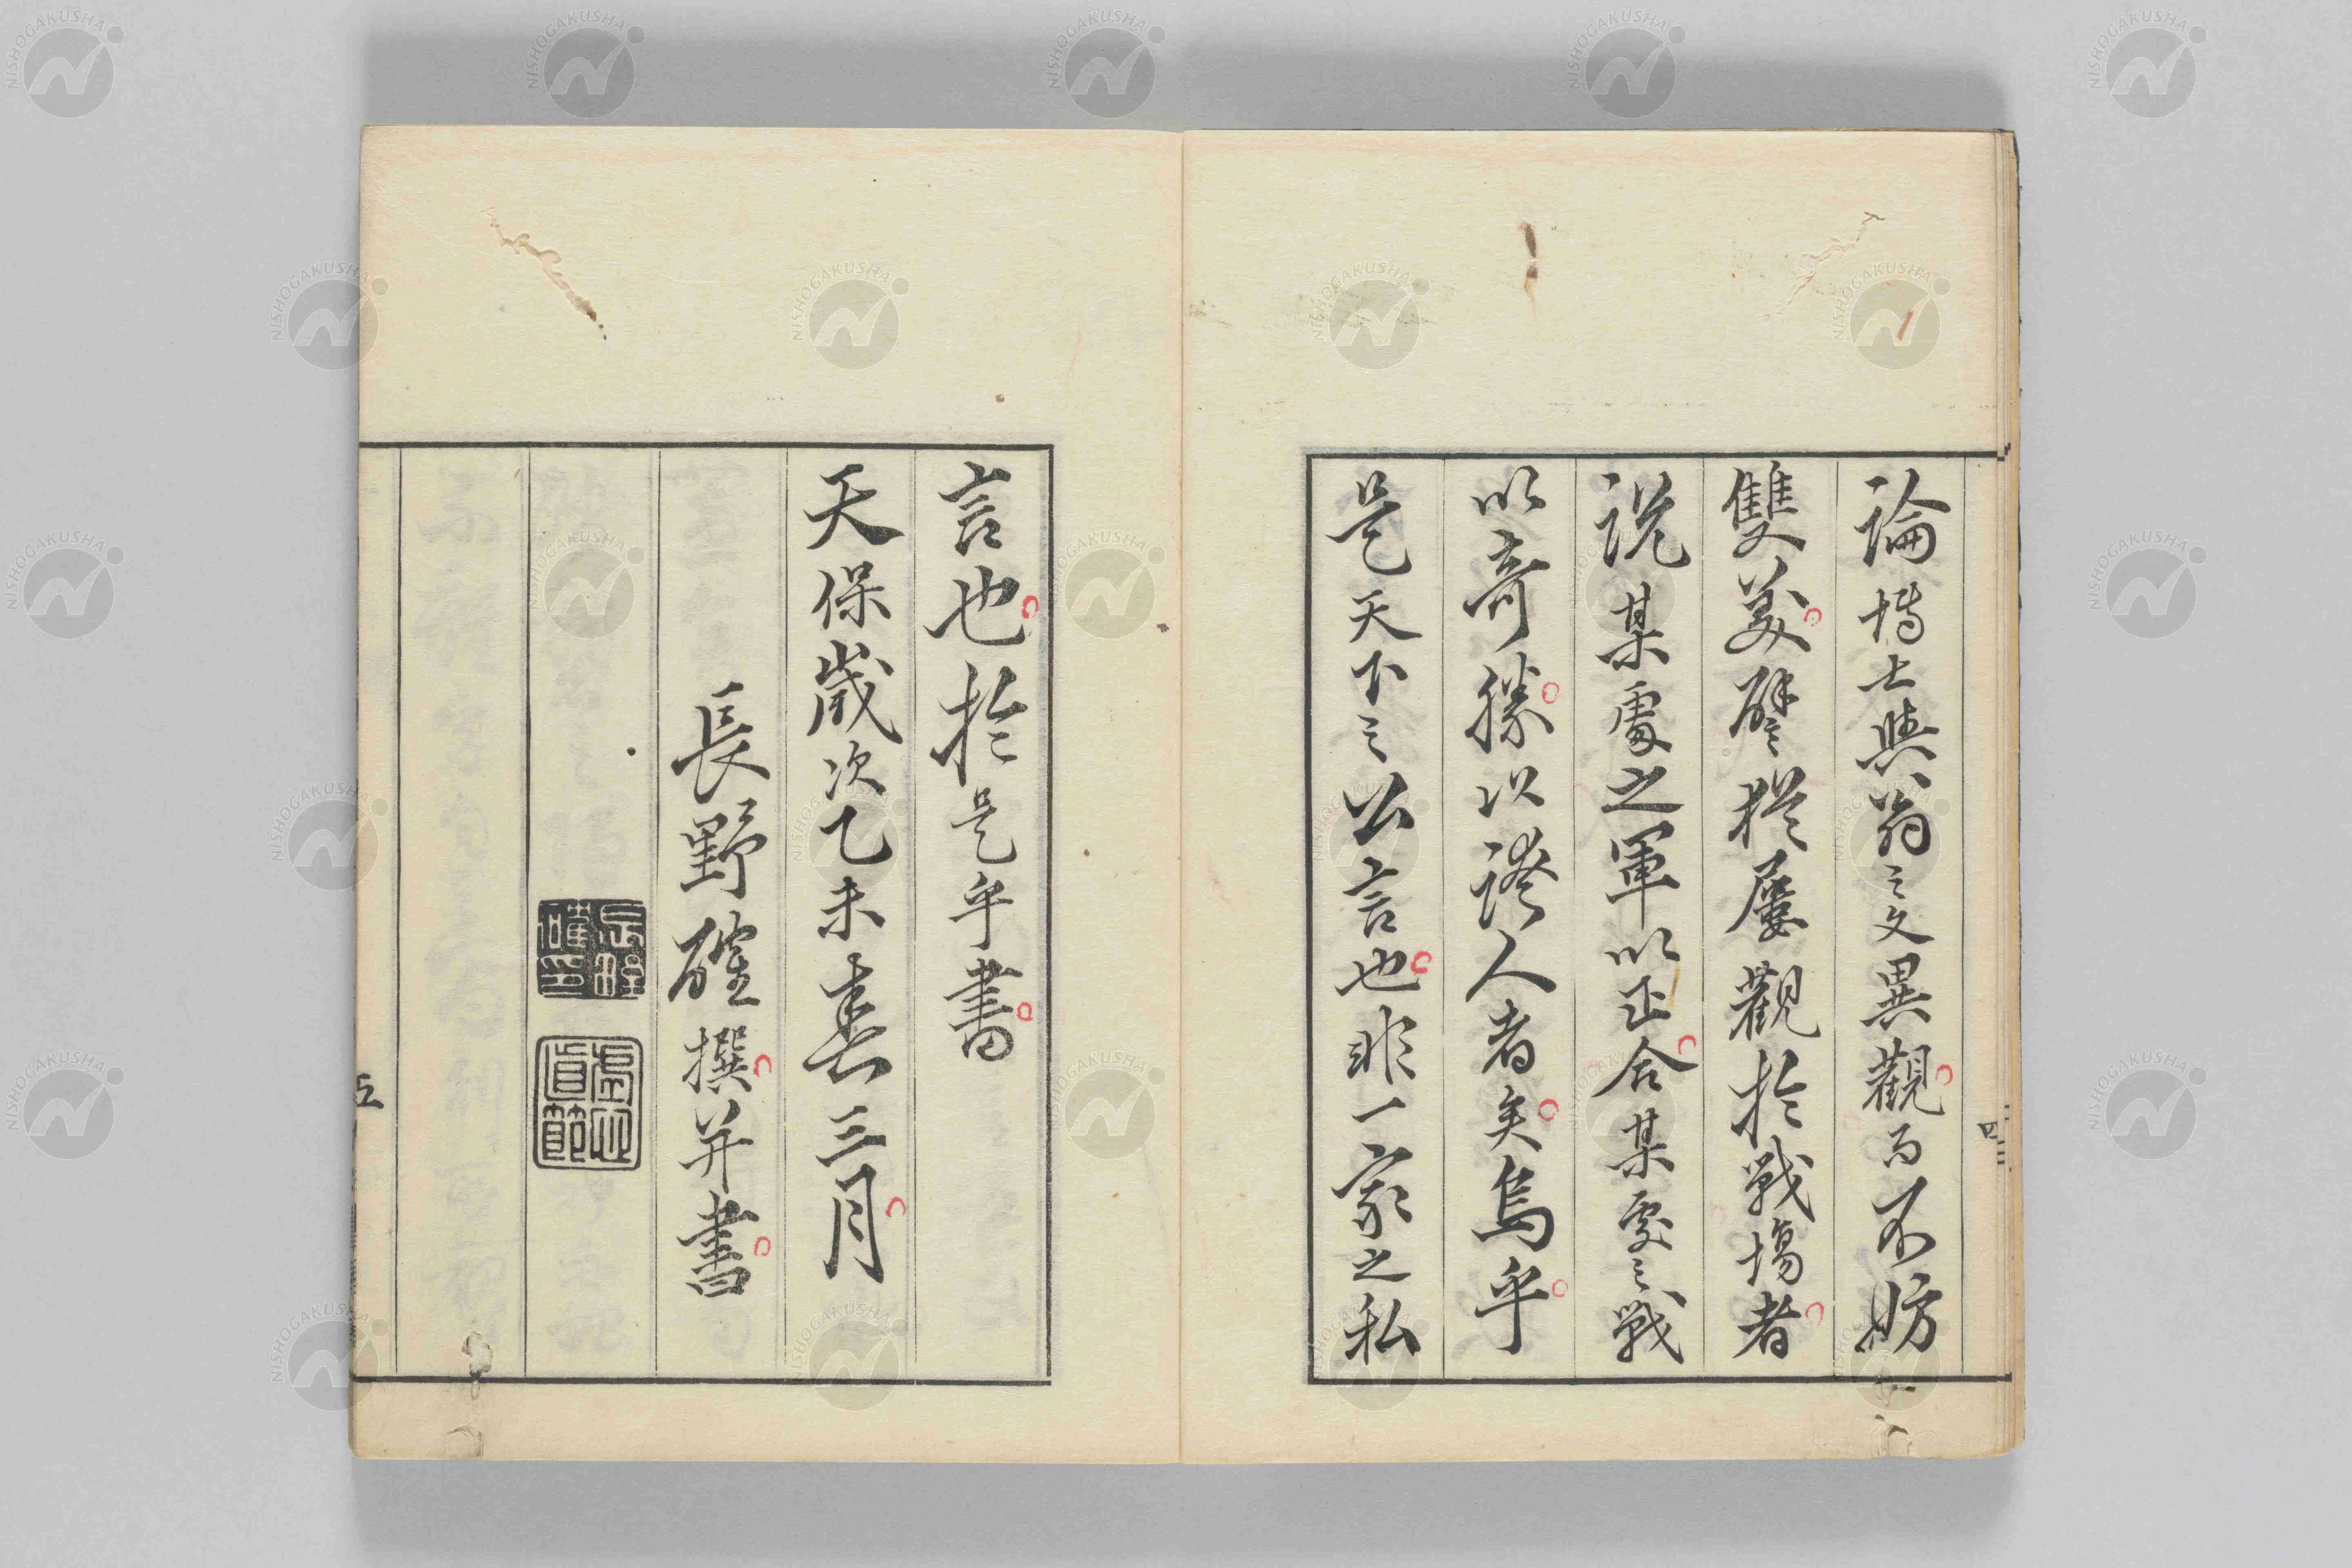 論博士與翁之文異觀而不妨
雙美譬猶屢觀於戰場者
說某處之軍以正合某處之戰
以奇勝以誇人者矣烏乎
是天下之公言也非一家之私
四
言也於是乎書
天保歲次乙未春三月
長野確撰并書
長野確印
虛心直節
五
NISHOGAKUSHA